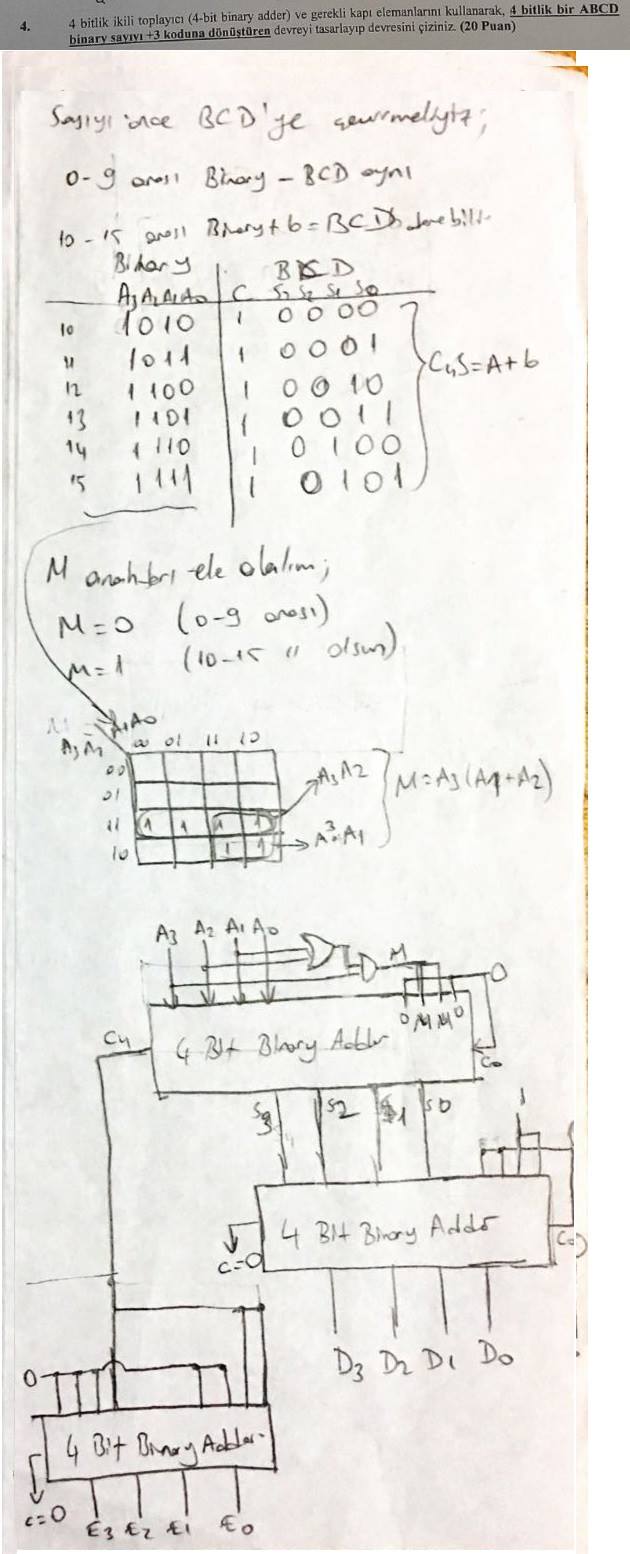 4. 4 bitlik ikili toplayıcı (4-bit binary adder) ve gerekli kapı elemanlarını kullanarak, 4 bitlik bir ABCD
binary sayıyı +3 koduna dönüştüren devreyi tasarlayıp devresini çiziniz. (20 Puan)
Sayıyı önce BCD'ye çevirmeliyiz;
0-9 arası Binary - BCD aynı
10-15 arası Binary + 6 = BCD
Binary BCD
A3 A2 A1 A0 C S3 S2 S1 S0
10 1010 1 0000
11 1011 1 0001
12 1100 1 0010
13 1101 1 0011
14 1110 1 0100
15 1111 1 0101
C4S=A+6
M anahtarı ele alalım;
M=0 (0-9 arası)
M=1 (10-15 " olsun)
A1A0
A3A2 00 01 11 10
00
01
11 1 1 1 1 A3A2
10 1 1 A3A1
M=A3(A1+A2)
A3 A2 A1 A0 M 0
0 M M 0
C4 4 Bit Binary Adder C0
S3 S2 S1 S0 1
4 Bit Binary Adder C0
C=0
D3 D2 D1 D0
0
4 Bit Binary Adder
C=0 E3 E2 E1 E0